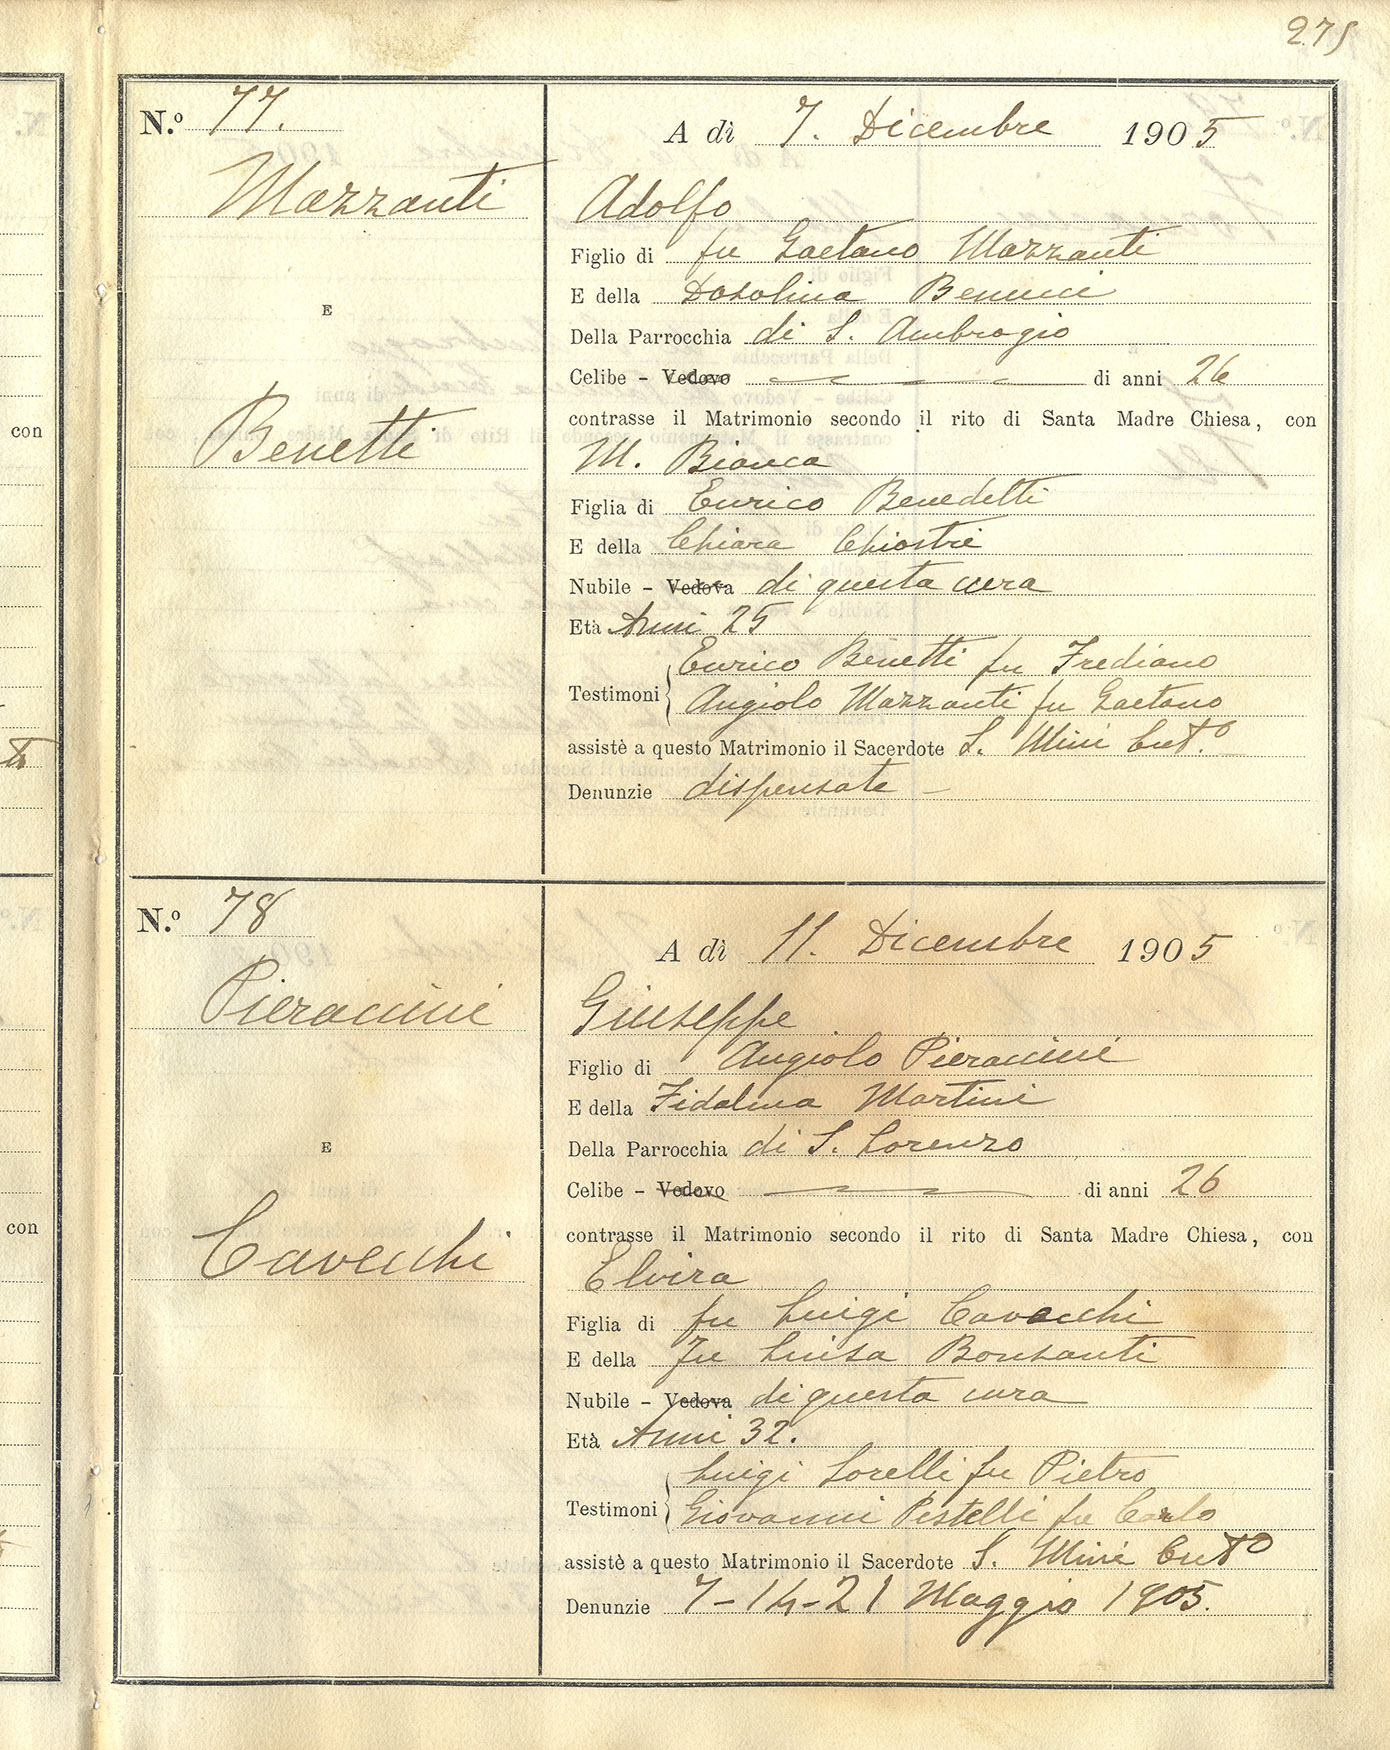 275
N.º 77.
Mazzanti
E
Benetti
A dì 7. Dicembre 1905
Adolfo
Figlio di fu Gaetano Mazzanti
E della Dosolina Benucci
Della Parrocchia di S. Ambrogio
Celibe – Vedovo di anni 26
contrasse il Matrimonio secondo il rito di Santa Madre Chiesa, con
M. Bianca
Figlia di Enrico Benedetti
E della Chiara Chiostri
Nubile – Vedova di questa cura
Età Anni 25
Testimoni Enrico Benetti fu Frediano
Angiolo Mazzanti fu Gaetano
assistè a questo Matrimonio il Sacerdote S. Mini Cut.º
Denunzie dispensate –
N.º 78
Pieraccini
E
Cavecchi
A dì 11. Dicembre 1905
Giuseppe
Figlio di Angiolo Pieraccini
E della Fidalma Martini
Della Parrocchia di S. Lorenzo
Celibe – Vedovo di anni 26
contrasse il Matrimonio secondo il rito di Santa Madre Chiesa, con
Elvira
Figlia di fu Luigi Cavacchi
E della fu Luisa Bonsanti
Nubile – Vedova di questa cura
Età Anni 32.
Testimoni Luigi Sorelli fu Pietro
Giovanni Pestelli fu Carlo
assistè a questo Matrimonio il Sacerdote S. Mini Cutº
Denunzie 7–14–21 Maggio 1905.
con
con